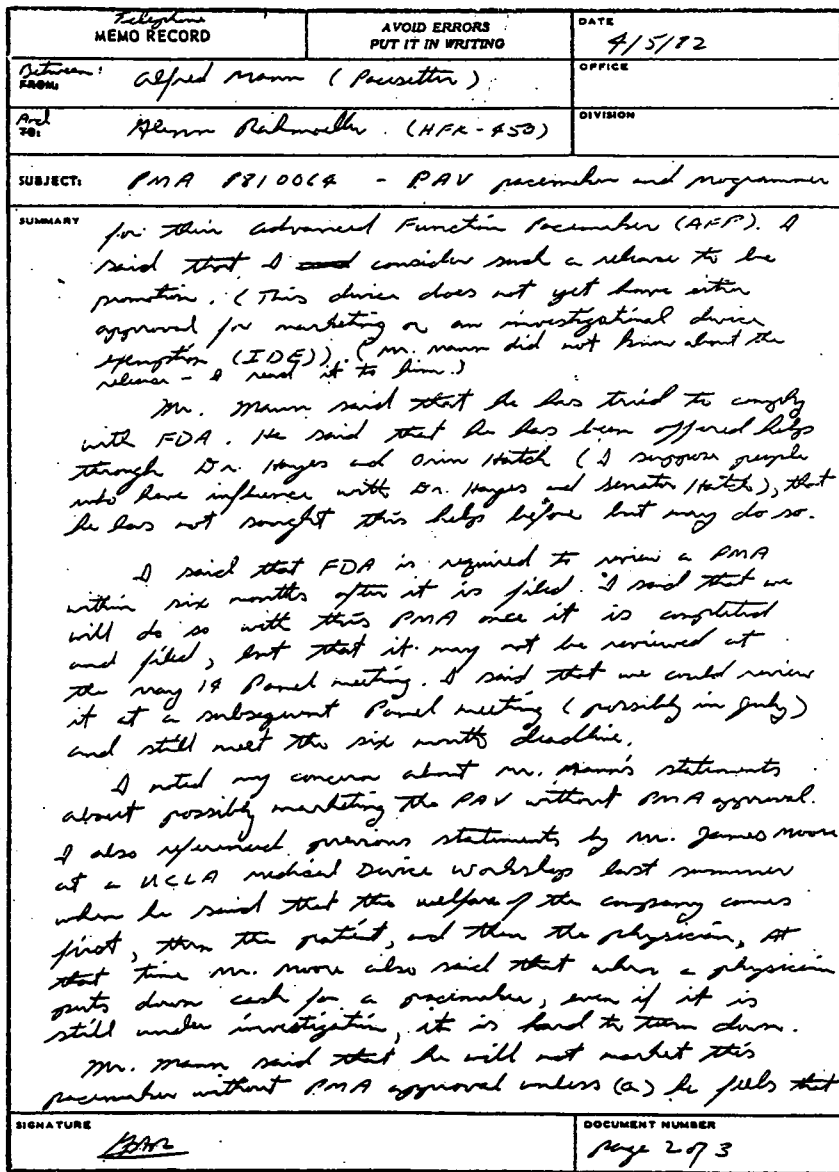 Telephone
MEMO RECORD
AVOID ERRORS
PUT IT IN WRITING
DATE
4/5/82
Between:
FROM:
Alfred Mann (Pacesetter)
OFFICE
And
TO:
Glenn Rahmoeller (HFK-450)
DIVISION
SUBJECT:
PMA P810064 - PAV pacemaker and programmer
SUMMARY
for their Advanced Function Pacemaker (AFP). I
said that I consider such a release to be
promotion. (This device does not yet have either
approval for marketing or an investigational device
exemption (IDE)). (Mr. Mann did not know about the
release - I read it to him.)
Mr. Mann said that he has tried to comply
with FDA. He said that he has been offered help
through Dr. Hayes and Orrin Hatch (I suppose people
who have influence with Dr. Hayes and Senator Hatch), that
he has not sought this help before but may do so.
I said that FDA is required to review a PMA
within six months after it is filed. I said that we
will do so with this PMA once it is completed
and filed, but that it may not be reviewed at
the May 14 Panel meeting. I said that we could review
it at a subsequent Panel meeting (possibly in July)
and still meet the six month deadline.
I noted my concern about Mr. Mann's statements
about possibly marketing the PAV without PMA approval.
I also referenced previous statements by Mr. James Moore
at a UCLA Medical Device Workshop last summer
when he said that the welfare of the company comes
first, then the patient, and then the physician. At
that time Mr. Moore also said that when a physician
puts down cash for a pacemaker, even if it is
still under investigation, it is hard to turn down.
Mr. Mann said that he will not market this
pacemaker without PMA approval unless (a) he feels that
SIGNATURE
DOCUMENT NUMBER
page 2 of 3